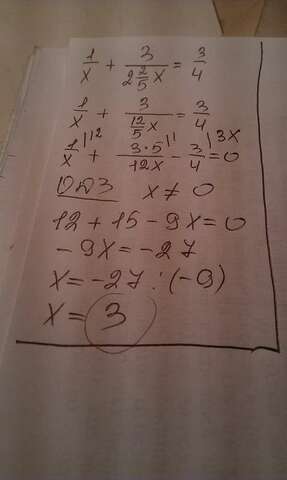 1/x + 3/(2 2/5 x) = 3/4
1/x + 3/(12/5 x) = 3/4
1/x |12 + 3·5/12x |1 - 3/4 |3x = 0
ОДЗ x ≠ 0
12 + 15 - 9x = 0
- 9x = - 27
x = - 27 : (-9)
x = 3